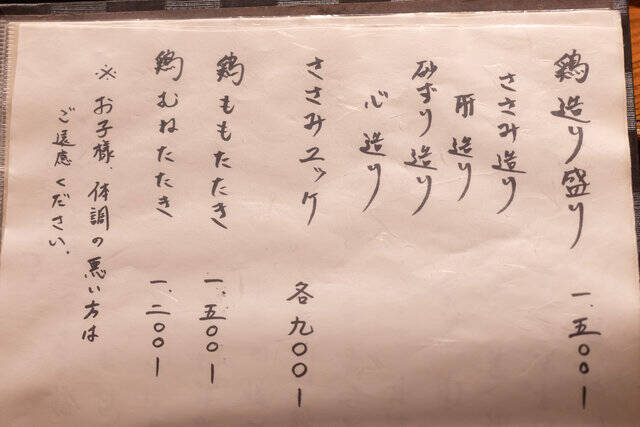 鶏造り盛り 一、五〇〇ー
ささみ造り
肝造り
砂ずり造り
心造り
ささみユッケ 各九〇〇ー
鶏ももたたき 一、五〇〇ー
鶏むねたたき 一、二〇〇ー
※お子様、体調の悪い方は
ご遠慮ください。